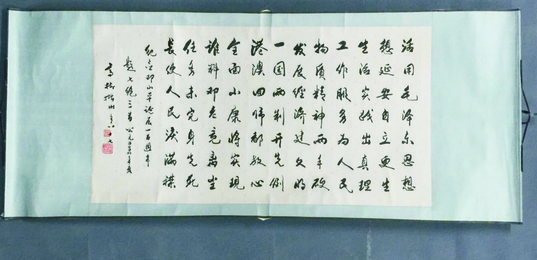 活用毛泽东思想
想延安自立更生
生活实践出真理
工作服务为人民
物质精神两手硬
发展经济建文明
一国两制开先例
港澳回归都放心
全面小康将实现
谁料邓老竟离尘
任务未完身先死
长使人民泪满襟
纪念邓小平诞辰一百周年
题七绝三首